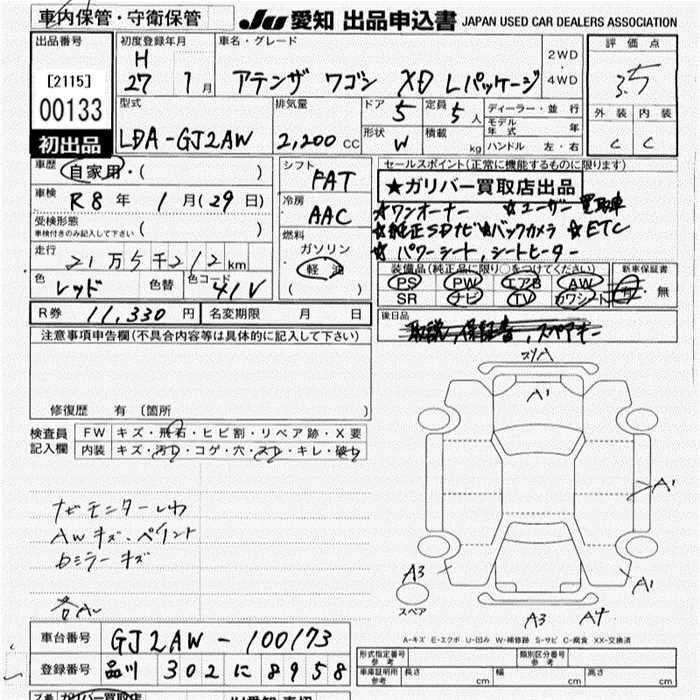 車内保管・守衛保管
JU 愛知 出品申込書 JAPAN USED CAR DEALERS ASSOCIATION
出品番号 初度登録年月 車名・グレード 評価点
[2115] H 27 1月 アテンザ ワゴン XD Lパッケージ 2WD 4WD 3.5
00133 型式 排気量 ドア 5 定員 5人 ディーラー・並行 外装 内装
モデル年式 年
初出品 LDA-GJ2AW 2,200 CC 形状 W 積載 kg ハンドル 左・右 C C
車歴 自家用・( ) シフト FAT セールスポイント(正常に機能するものに限ります)
車検 R8年 1月(29日) 冷房 AAC ★ガリバー買取店出品
受検形態 車検付きのみ記入して下さい ( ) 燃料 ★ワンオーナー ★ユーザー買取車
走行 21万5千212km ガソリン ★純正SDナビ★バックカメラ ★ETC
軽油 ★パワーシート,シートヒーター
色 レッド 色替 色コード 41V ( ) 装備品(純正品に限り○をつけてください) 新車保証書
PS PW エアB AW
SR ナビ TV カワシート 有・無
R券 11,330円 名変期限 月 日 後日品
取説,保証書,スペアキー
注意事項申告欄(不具合内容等は具体的に記入して下さい)
修復歴 有 (箇所 )
検査員記入欄 FW キズ・飛石・ヒビ割・リペア跡・X要
内装 キズ・汚れ・コゲ・穴・スレ・キレ・破れ
A1
A1
ナビモニターしわ
AWキズ・ペイント
DミラーキズA3 A1
スペア
A3 A4
A-キズ E-エクボ U-凹み W-補修跡 S-サビ C-腐食 XX-交換済
車台番号 GJ2AW-100173
登録番号 品川 302 に 8958
形式指定番号 参考 類別区分番号 参考
車庫証明用 参考 長さ cm 幅 cm 高さ cm
ガリバー買取店